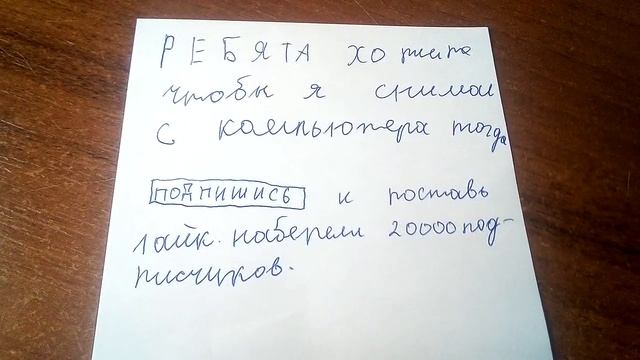 РЕБЯТА хотите
чтобы я снимал
с компьютера тогда
ПОДПИШИСЬ и поставь
лайк. наберем 20000 под-
писчиков.